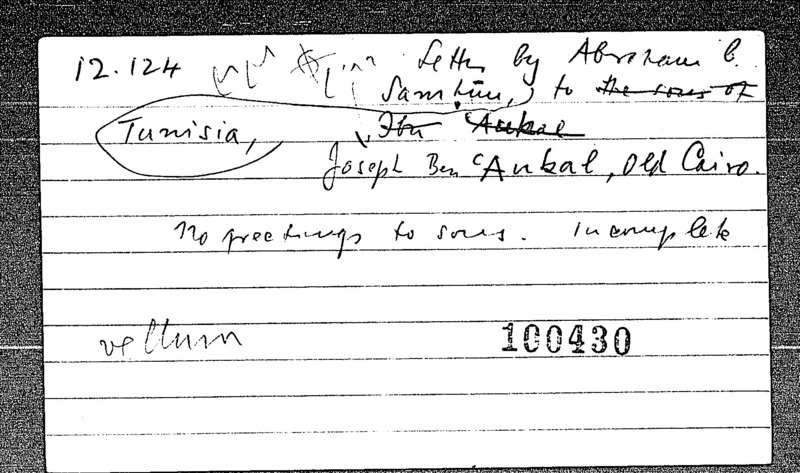 12.124 Letter by Abraham b.
Samhūn, to the sons of
Tunisia, Ibn ʿAukal
Joseph Ben ʿAukal, Old Cairo.
No greetings to sons. Incomplete
vellum 100430